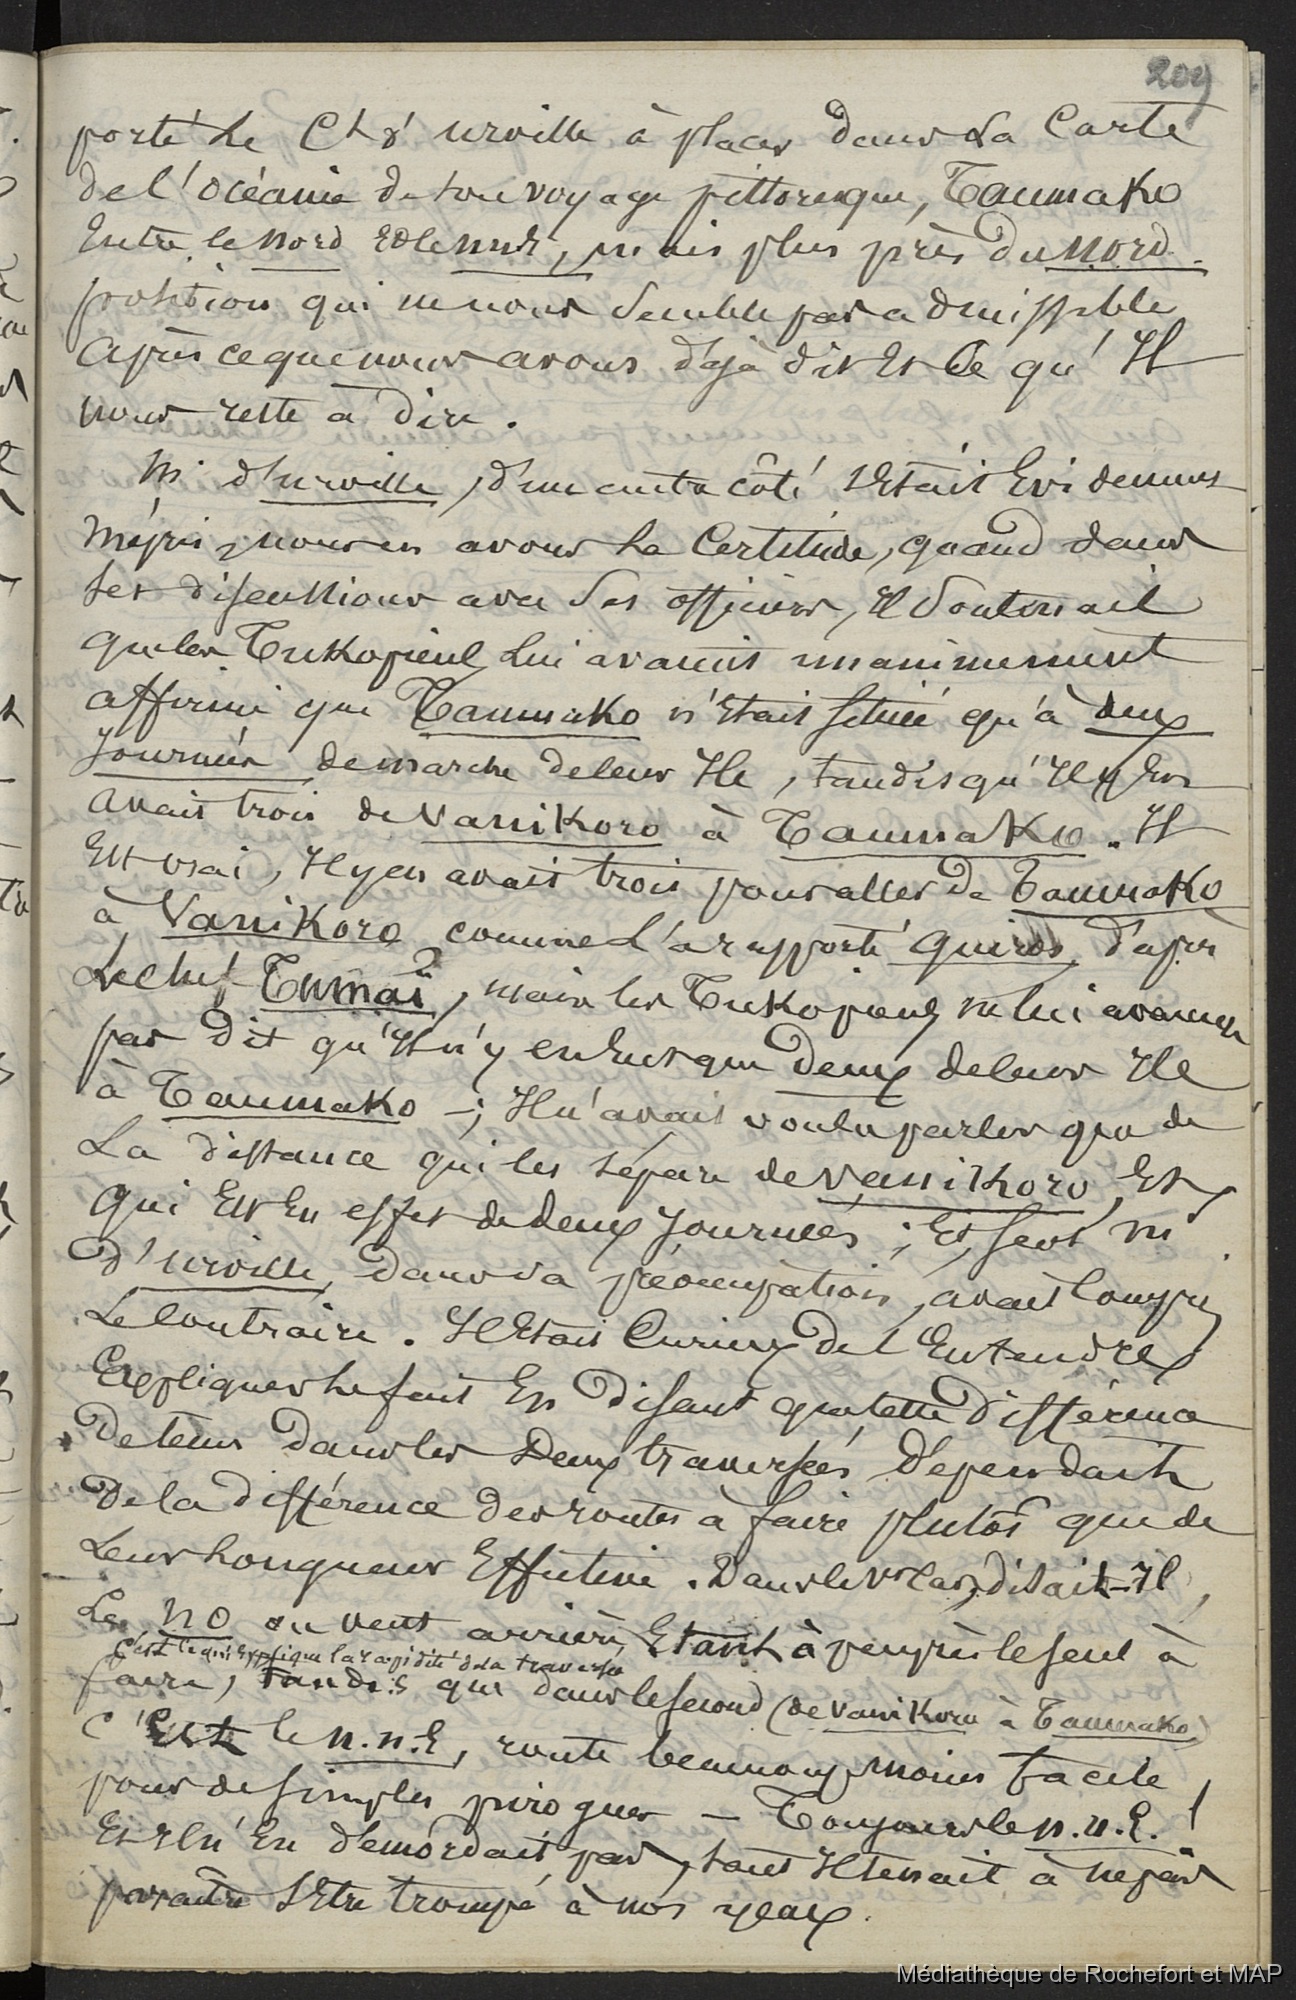 209
porté le Ct d'urville à placer dans sa Carte
de l'océanie de son voyage pittoresque, Taumako
Entre le nord Et le nnE, mais plus près du nord.
position qui ne nous semble pas admissible
après ce que nous avons déjà dit Et Ce qu'Il
nous reste à dire.
M. d'urville, d'un autre côté s'Etait Evidemment
mépris, nous en avons la Certitude, quand dans
ses discussions avec ses officiers, Il soutenait
que les Tukopiens lui avaient unanimement
affirmé que Taumako n'Etait située qu'à deux
journées de marche de leur Ile, tandis qu'Il y En
avait trois de Vanikoro à Taumako. Il
Est vrai, Il y en avait trois pour aller de Taumako
à Vanikoro comme L'a rapporté Quiros d'après
Le chef Tumaï, mais les Tukopiens ne lui avaient
pas Dit qu'Il n'y en Eut que Deux de leur Ile
à Taumako -; Il n'avait voulu parler que de
La distance qui les sépare de Vanikoro, Et
qui Est En effet de deux journées; Et seul M.
D'urville, dans sa préoccupation, avait Compris
Le Contraire. Il Etait Curieux de l'Entendre
Expliquer le fait En Disant que cette Différence
De tems dans les Deux traversées Dépendait
De la différence des routes à faire plutôt que de
Leur longueur Effective. Dans le 1er cas, disait-Il,
Le no ou vent arrière, Etant à peu près le seul à
C'est ce qui Explique la rapidité de la traversée
faire, tandis que dans le second (de Vanikoro à Taumako)
C'Est le n.n.E, route beaucoup moins facile
pour de simples pirogues — Toujours le n.n.E.!
Et Il n'En démordait pas, tant Il tenait à ne pas
paraître s'Etre trompé à nos yeux.
Médiathèque de Rochefort et MAP